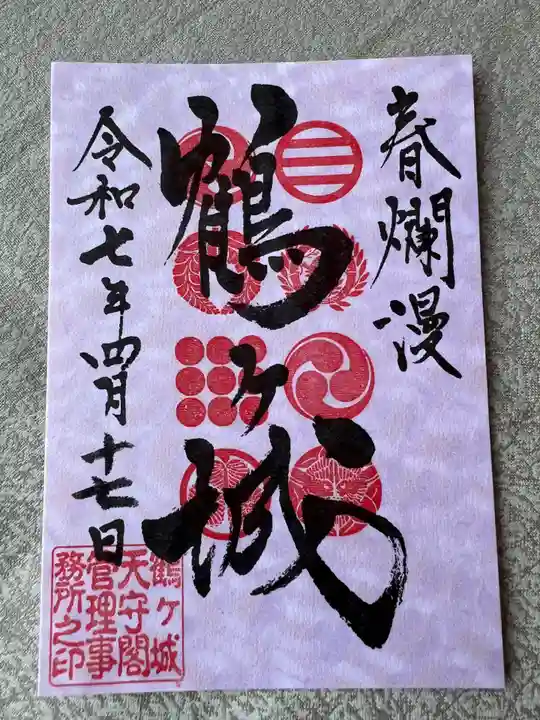 春爛漫
鶴ヶ城
令和七年四月十七日
鶴ヶ城
天守閣
管理事
務所之印